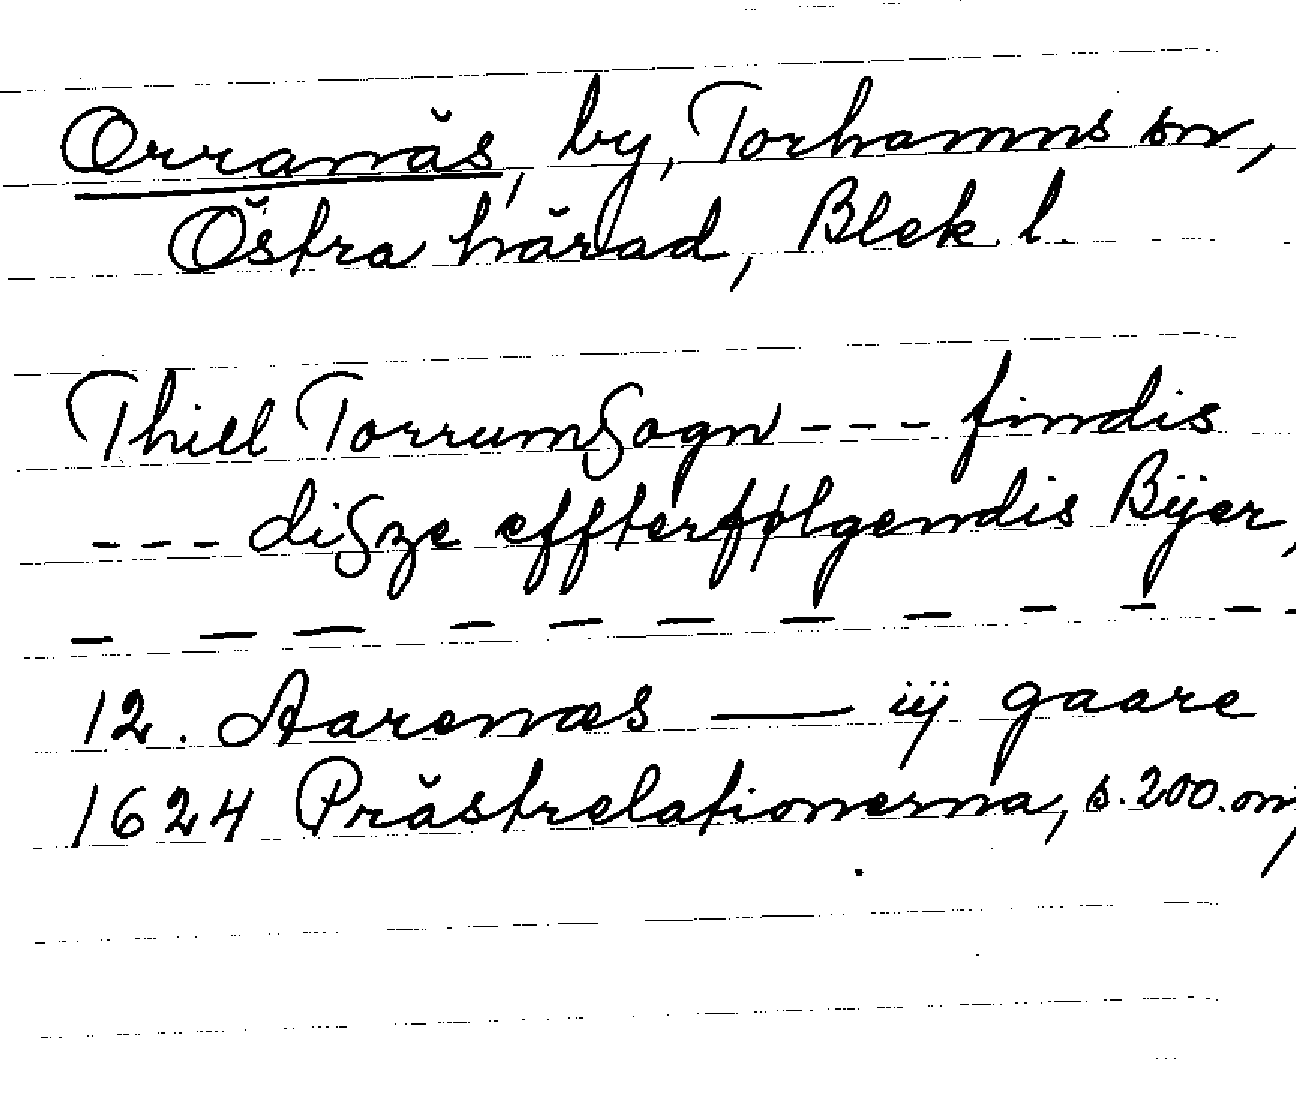 Orranäs, by, Torhamns sn,
Östra härad, Blek. l.
Thill Torrumßogn --- findis
--- dißze effterfølgendis Bÿer,
— — — — — — — — — —
12. Aarenæs — iij gaare
1624 Prästrelationerna, s. 200. om,